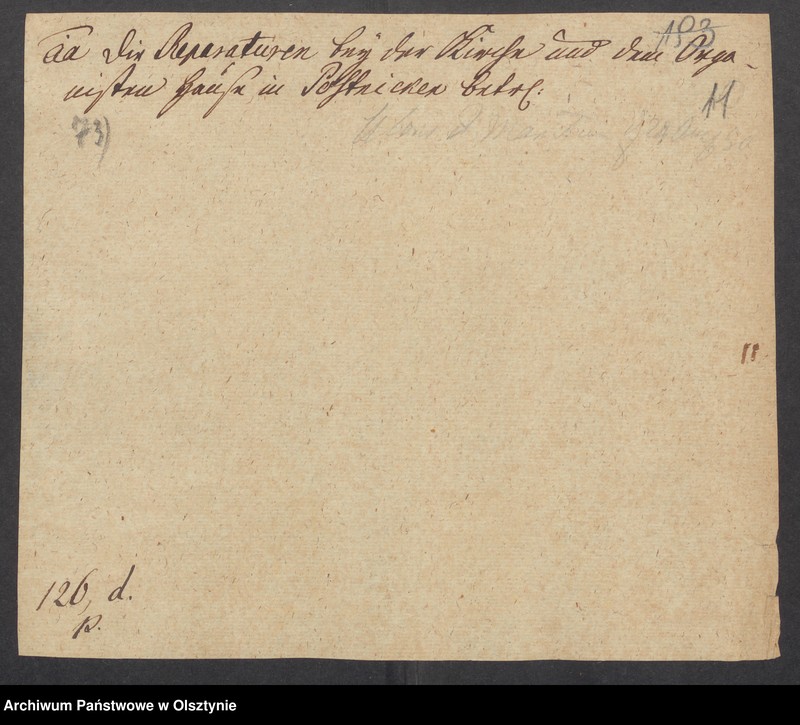 aa die Reparaturen bey der Kirche und dem Orga-
nisten Hause in Postnicken betrf:
193
11
73)
11.
126, d.
p.
Archiwum Państwowe w Olsztynie